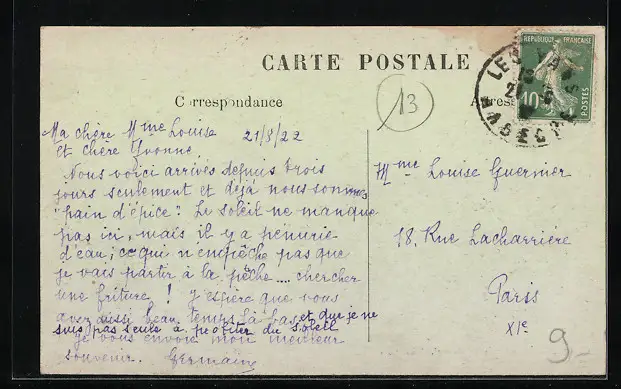 CARTE POSTALE
Correspondance
13
Adress
REPUBLIQUE FRANCAISE
10c
POSTES
LES VANS
ARDECHE
21
Ma chère Mme Louise
21/8/22
et chère Yvonne
Nous voici arrivés depuis trois
jours seulement et déjà nous sommes
"pain d'épice". Le soleil ne manque
pas ici, mais il y a pénurie
d'eau; ce qui n'empêche pas que
je vais partir à la pêche .... chercher
une friture ! J'espère que vous
avez aussi beau temps là-bas et que je ne
suis pas seule à profiter du soleil
Je vous envoie mon meilleur
souvenir. Germaine
Mme Louise Guernier
18, Rue Lacharrière
Paris
XIe
9-